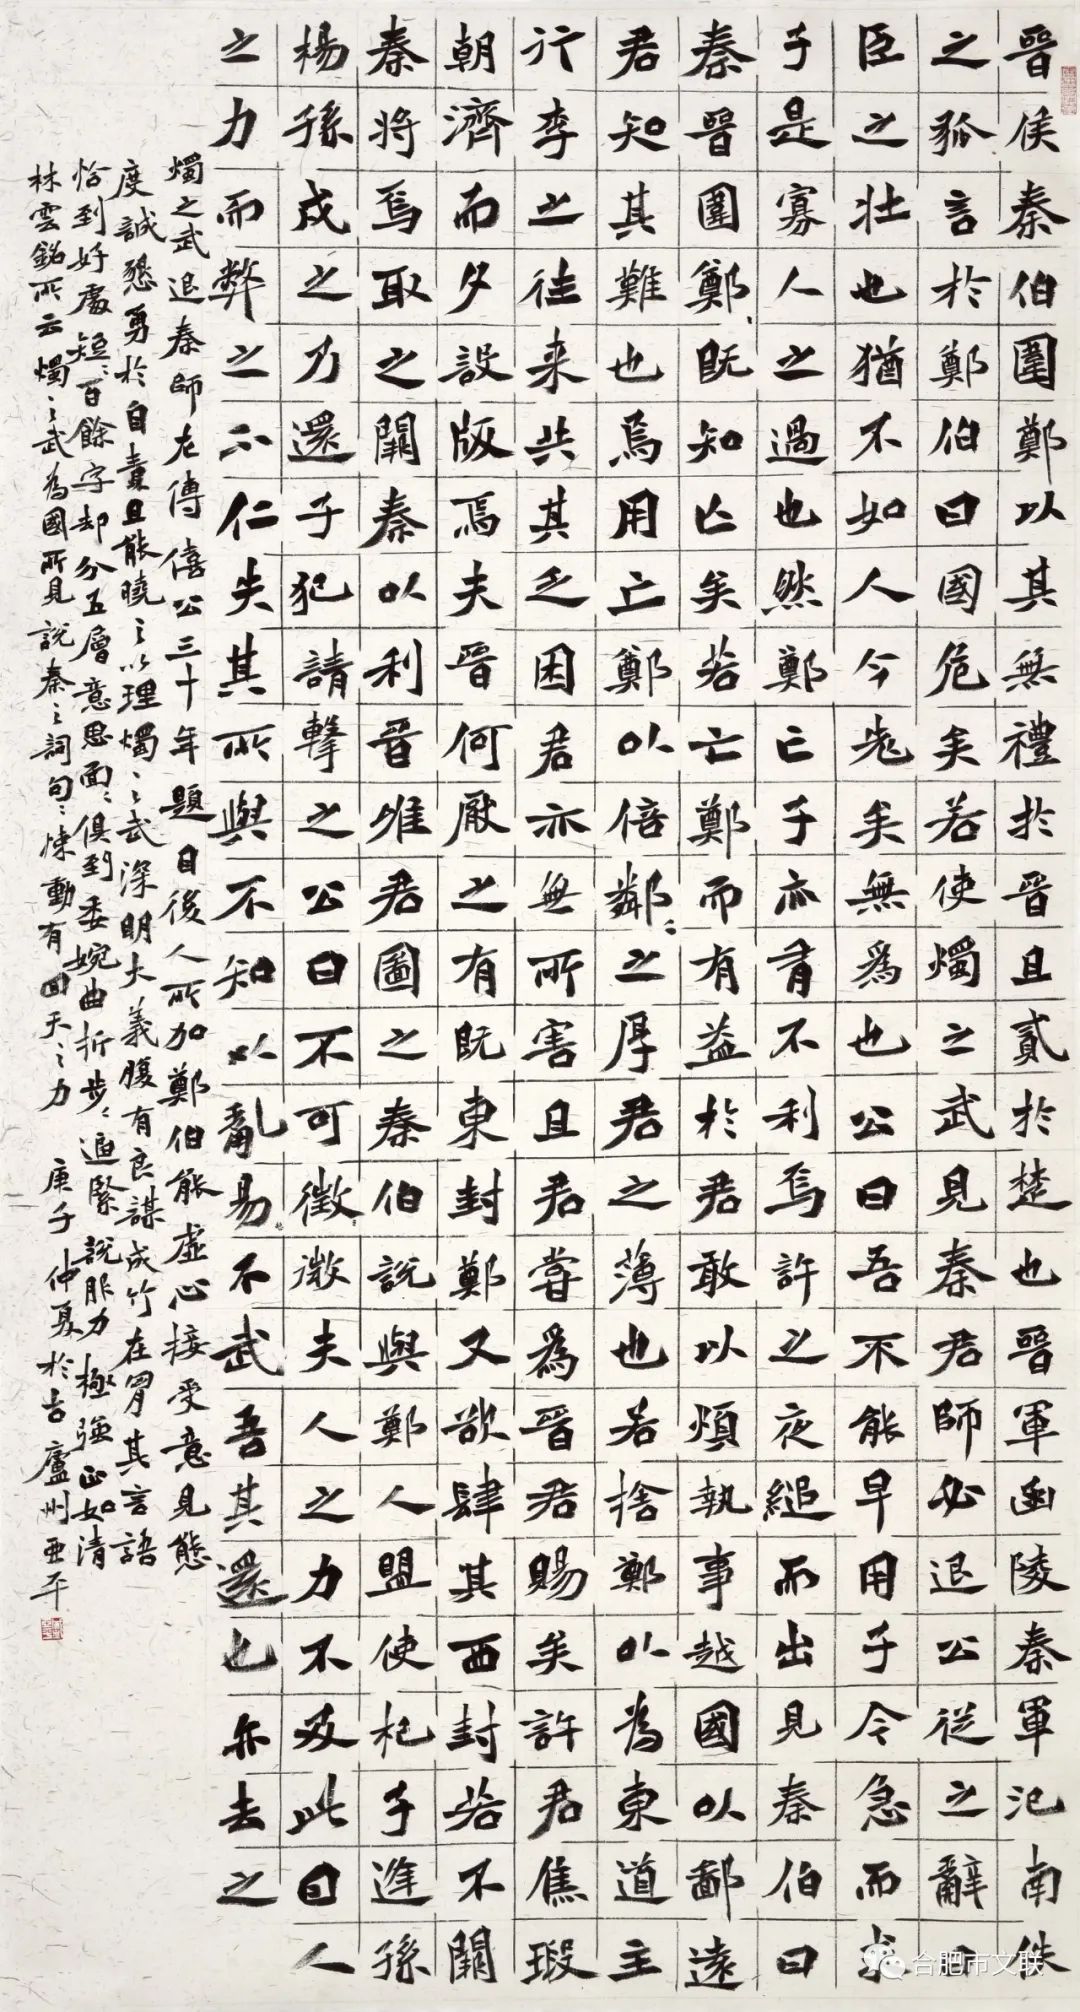 晉侯秦伯圍鄭以其無禮於晉且貳於楚也晉軍函陵秦軍氾南佚
之狐言於鄭伯曰國危矣若使燭之武見秦君師必退公從之辭曰
臣之壯也猶不如人今老矣無為也公曰吾不能早用子今急而求
子是寡人之過也然鄭亡子亦有不利焉許之夜縋而出見秦伯曰
秦晉圍鄭、既知亡矣若亡鄭而有益於君敢以煩執事越國以鄙遠
君知其難也焉用亡鄭以倍鄰、之厚君之薄也若捨鄭以為東道主
行李之往来共其乏困君亦無所害且君嘗為晉君賜矣許君焦瑕
朝濟而夕設版焉夫晉何厭之有既東封鄭又欲肆其西封若不闕
秦將焉取之闕秦以利晉唯君圖之秦伯說與鄭人盟使杞子逢孫
楊孫戍之乃還子犯請擊之公曰不可徵微夫人之力不及此因人
之力而弊之不仁失其所與不知以亂易不武吾其還也亦去之
燭之武退秦師左傳僖公三十年題目後人所加鄭伯能虛心接受意見態
度誠懇勇於自責且能曉之以理燭之武深明大義腹有良謀成竹在胸其言語
恰到好處短、百餘字却分五層意思面、俱到委婉曲折步、逼緊說服力極強正如清
林雲銘所云燭之武為國所見說秦之詞句、悚動有回天之力 庚子仲夏於古廬州亞平
合肥市文联